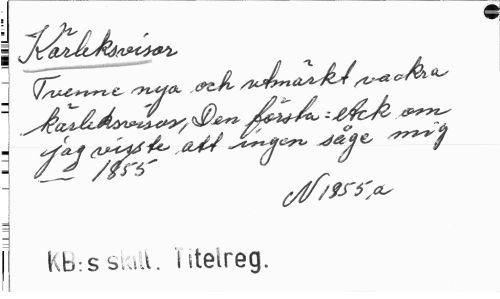 Kärleksvisor
Tvenne nya och utmärkt vackra
kärleksvisor, Den första: Ack om
jag visste att ingen såge mig
— 1855
N 1855,a
KB:s skill. Titelreg.